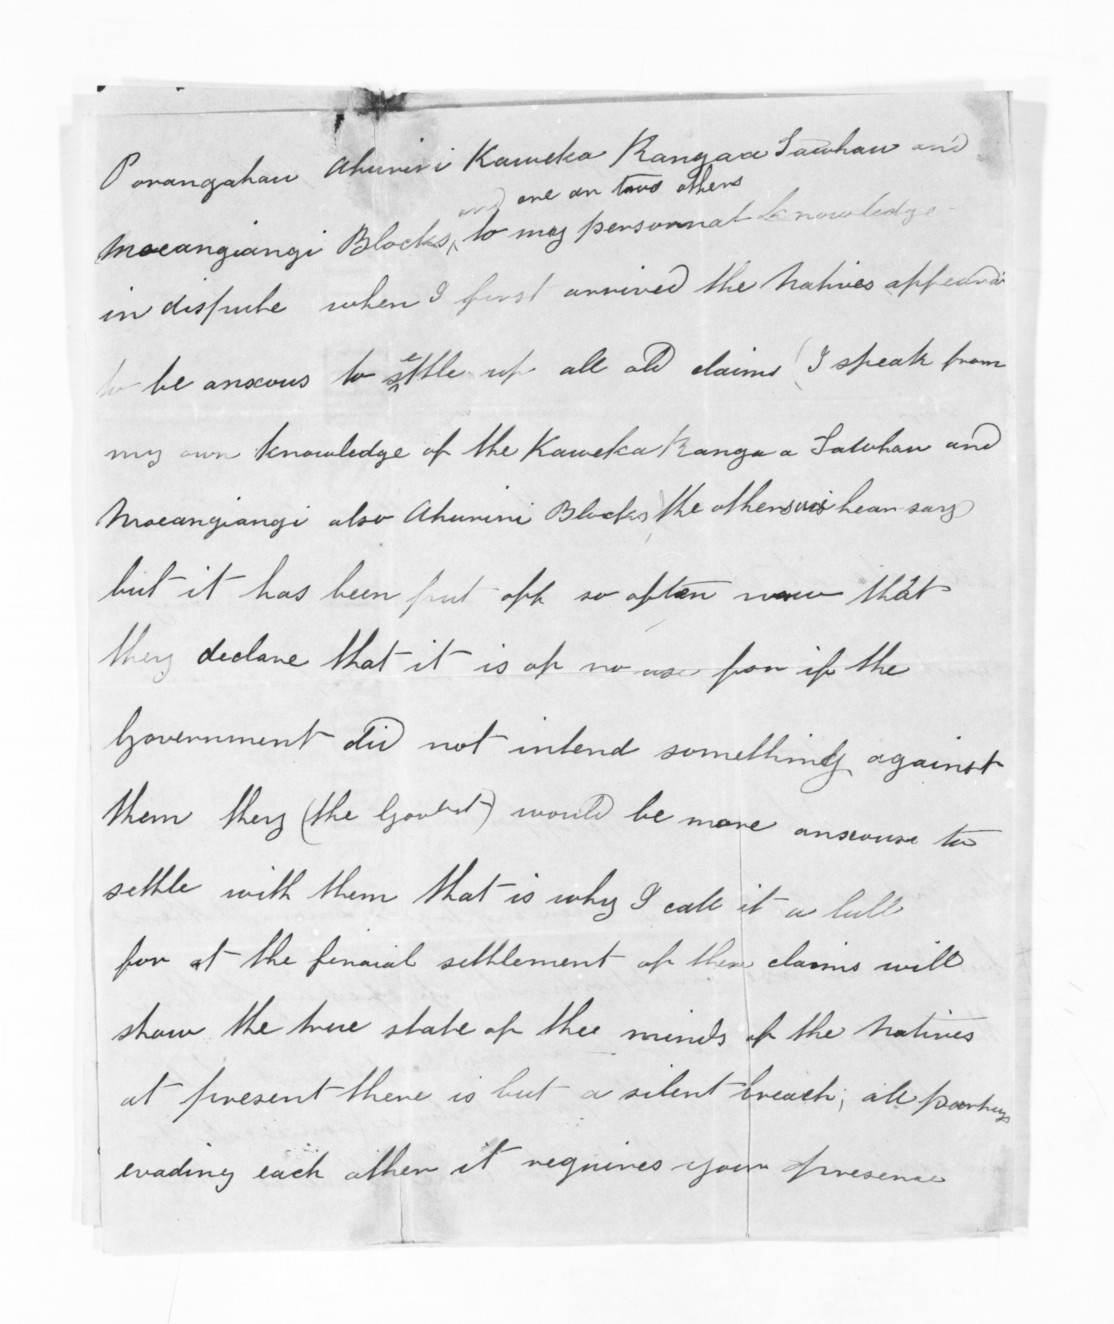 Porangahau Ahuriri Kaweka Rangaa Tawhau and
and one or two others
Moeangiangi Blocks, ^ to my personnal knowledge
in dispute when I first arrived the Natives appeard
to be anxous to settle up all old claims (I speak from
my own knowledge of the Kaweka Ranga a Tawhau and
Moeangiangi also Ahuriri Blocks) the others is hear say
but it has been put off so often now that
they declare that it is of no use for if the
Government did not intend something against
them they (the Govert) would be more anxouse to
settle with them that is why I call it a lull
for at the finaial settlement of these claims will
show the true state of thee minds of the Natives
at present there is but a silent breach; all partys
evading each other it requires your presense